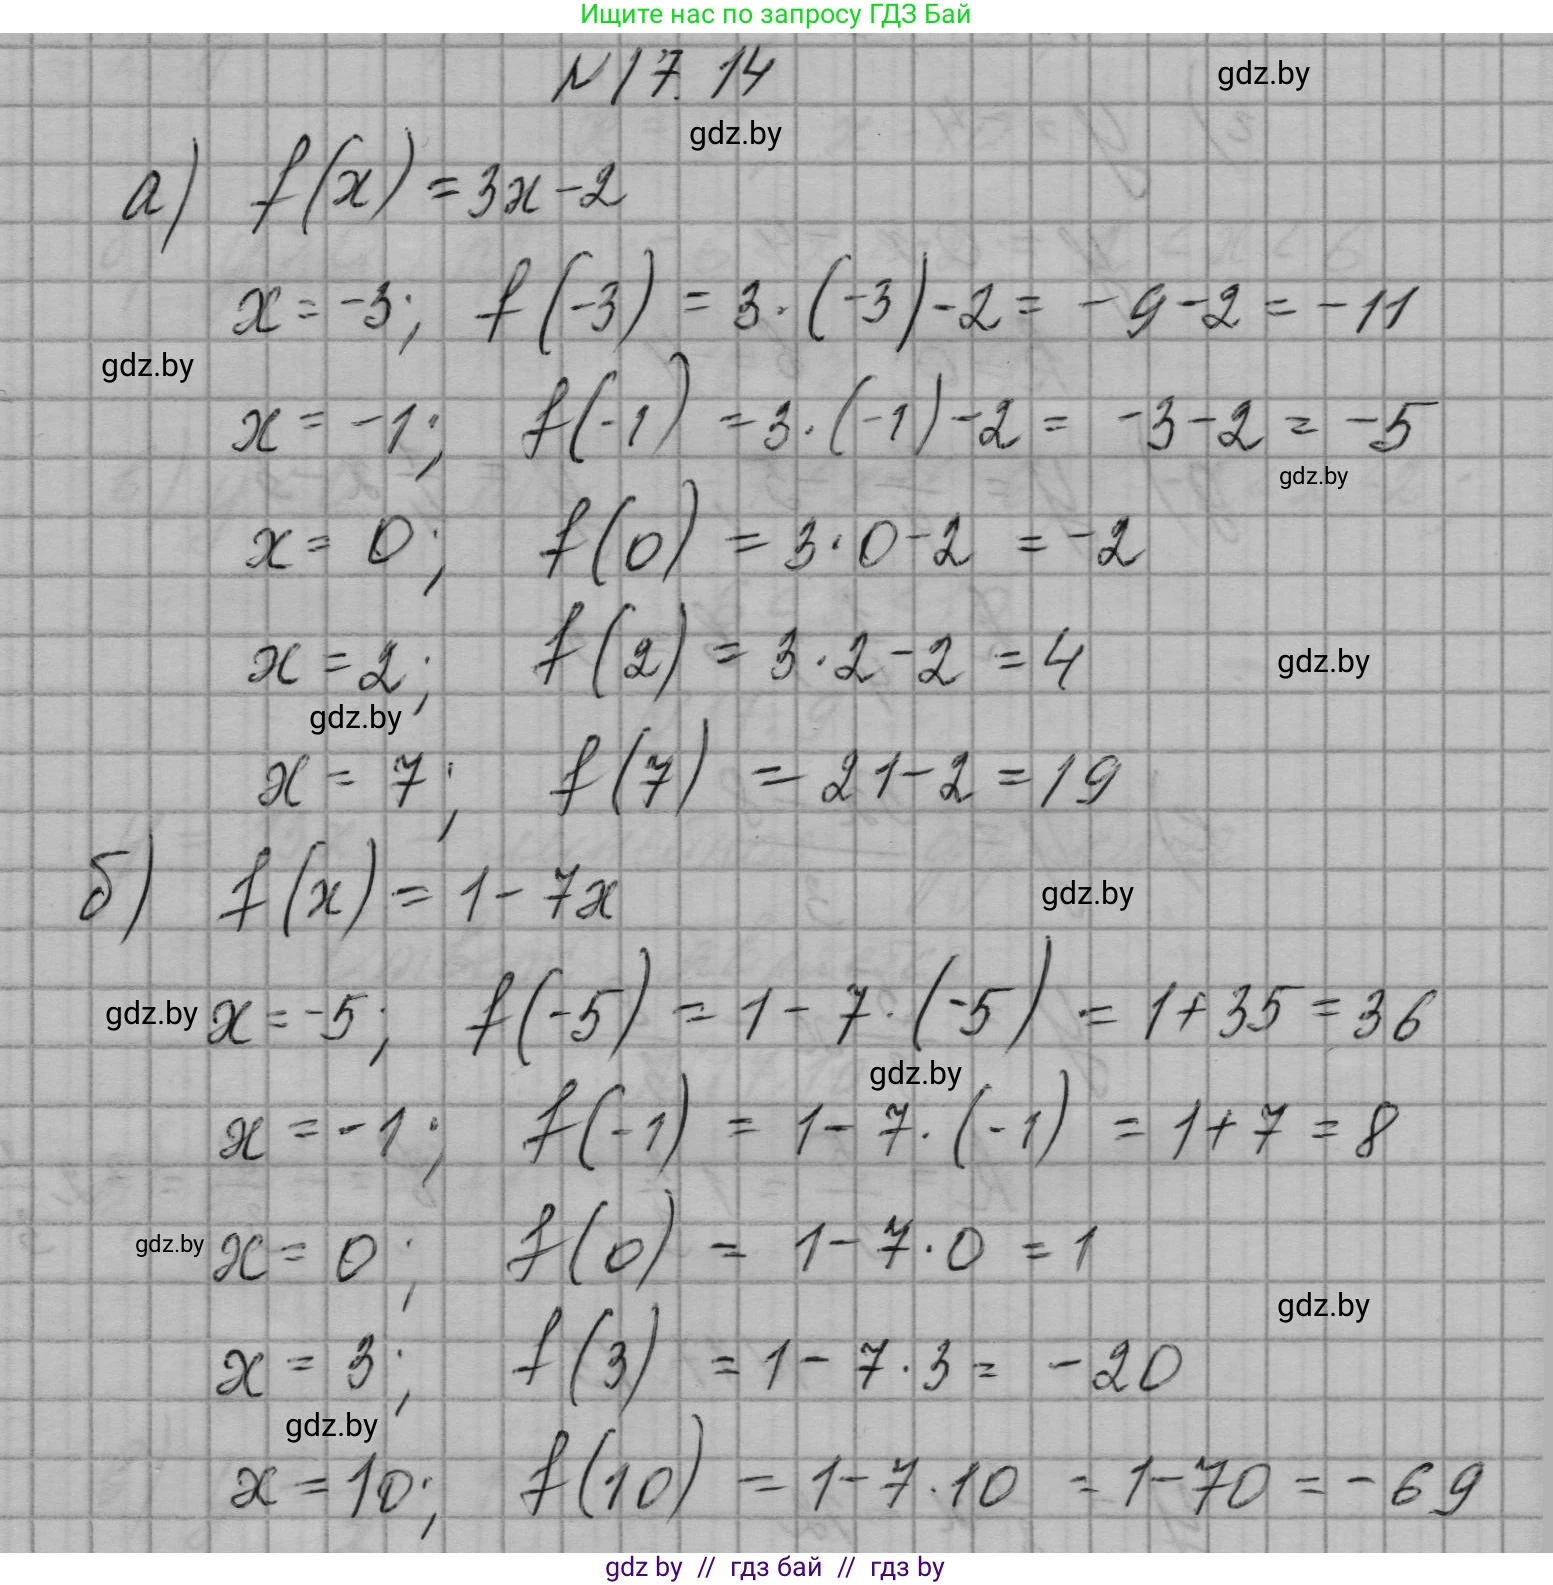 Ищите нас по запросу ГДЗ Бай
N 17.14
gdz.by
gdz.by
а) f(x) = 3x - 2
x = -3; f(-3) = 3·(-3) - 2 = -9 - 2 = -11
gdz.by
x = -1; f(-1) = 3·(-1) - 2 = -3 - 2 = -5
gdz.by
x = 0; f(0) = 3·0 - 2 = -2
x = 2; f(2) = 3·2 - 2 = 4
gdz.by
gdz.by
x = 7; f(7) = 21 - 2 = 19
б) f(x) = 1 - 7x
gdz.by
gdz.by
x = -5; f(-5) = 1 - 7·(-5) = 1 + 35 = 36
gdz.by
x = -1; f(-1) = 1 - 7·(-1) = 1 + 7 = 8
gdz.by
x = 0; f(0) = 1 - 7·0 = 1
gdz.by
x = 3; f(3) = 1 - 7·3 = -20
gdz.by
x = 10; f(10) = 1 - 7·10 = 1 - 70 = -69
gdz by // гдз бай // гдз by